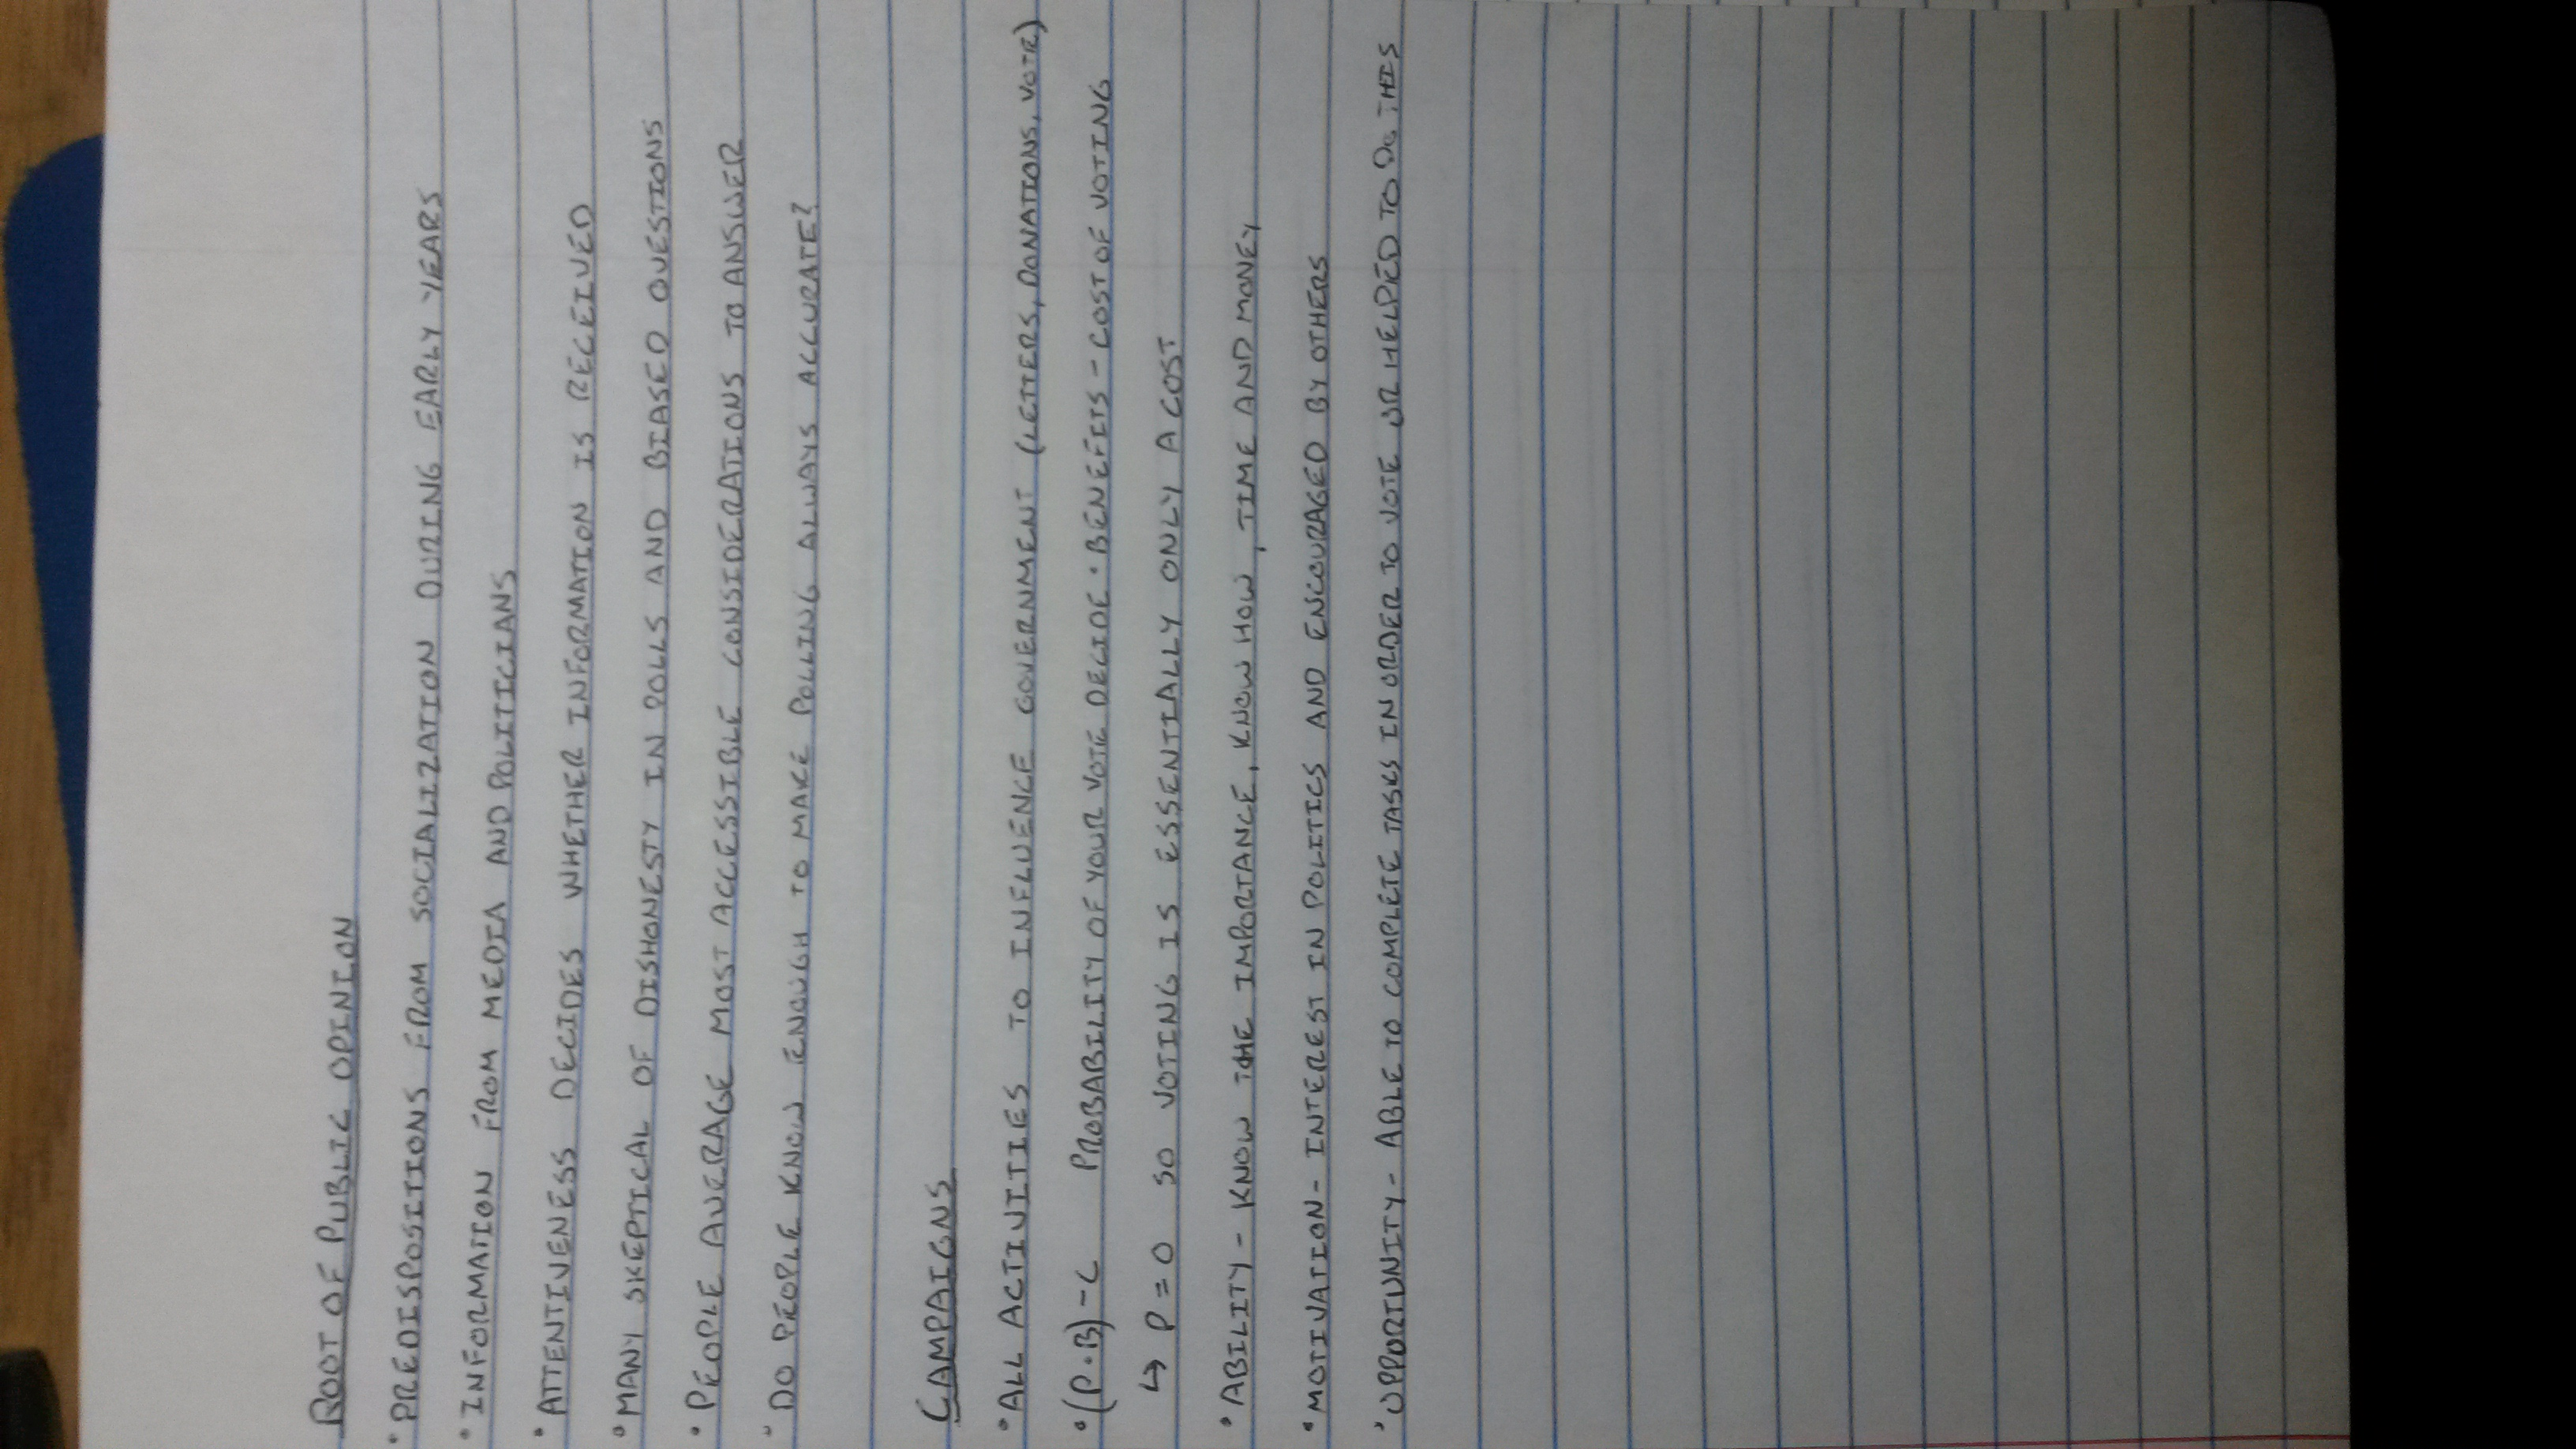 ROOT OF PUBLIC OPINION
• PREDISPOSITIONS FROM SOCIALIZATION DURING EARLY YEARS
• INFORMATION FROM MEDIA AND POLITICIANS
• ATTENTIVENESS DECIDES WHETHER INFORMATION IS RECEIVED
• MANY SKEPTICAL OF DISHONESTY IN POLLS AND BIASED QUESTIONS
• PEOPLE AVERAGE MOST ACCESSIBLE CONSIDERATIONS TO ANSWER
• DO PEOPLE KNOW ENOUGH TO MAKE POLLING ALWAYS ACCURATE?
CAMPAIGNS
• ALL ACTIVITIES TO INFLUENCE GOVERNMENT (LETTERS, DONATIONS, VOTE)
• (P•B)-C PROBABILITY OF YOUR VOTE DECIDE • BENEFITS - COST OF VOTING
↳ P=0 SO VOTING IS ESSENTIALLY ONLY A COST
• ABILITY - KNOW THE IMPORTANCE, KNOW HOW, TIME AND MONEY
• MOTIVATION - INTEREST IN POLITICS AND ENCOURAGED BY OTHERS
• OPPORTUNITY - ABLE TO COMPLETE TASKS IN ORDER TO VOTE OR HELPED TO DO THIS